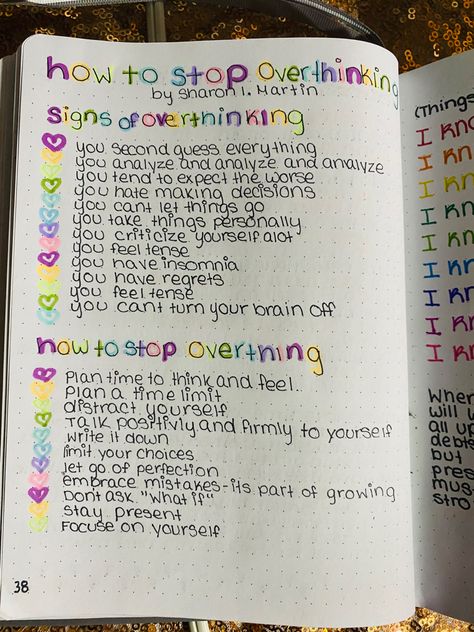 how to stop overthinking
by sharon l. Martin
signs of overthinking
you second guess everything
you analyze and analyze and analyze
you tend to expect the worse
you hate making decisions
you cant let things go
you take things personally
you criticize yourself alot
you feel tense
you have insomnia
you have regrets
you feel tense
you cant turn your brain off
how to stop overthning
Plan time to think and feel.
Plan a time limit
distract yourself
Talk positivly and firmly to yourself
write it down
limit your choices
let go of perfection
embrace mistakes-its part of growing
Dont ask "what if"
stay present
Focus on yourself
38
(Things
I kn
I kn
I kn
I kn
I kn
I kn
I kn
I kn
I kn
When
will
all up
debt
but
pres
mus
stro